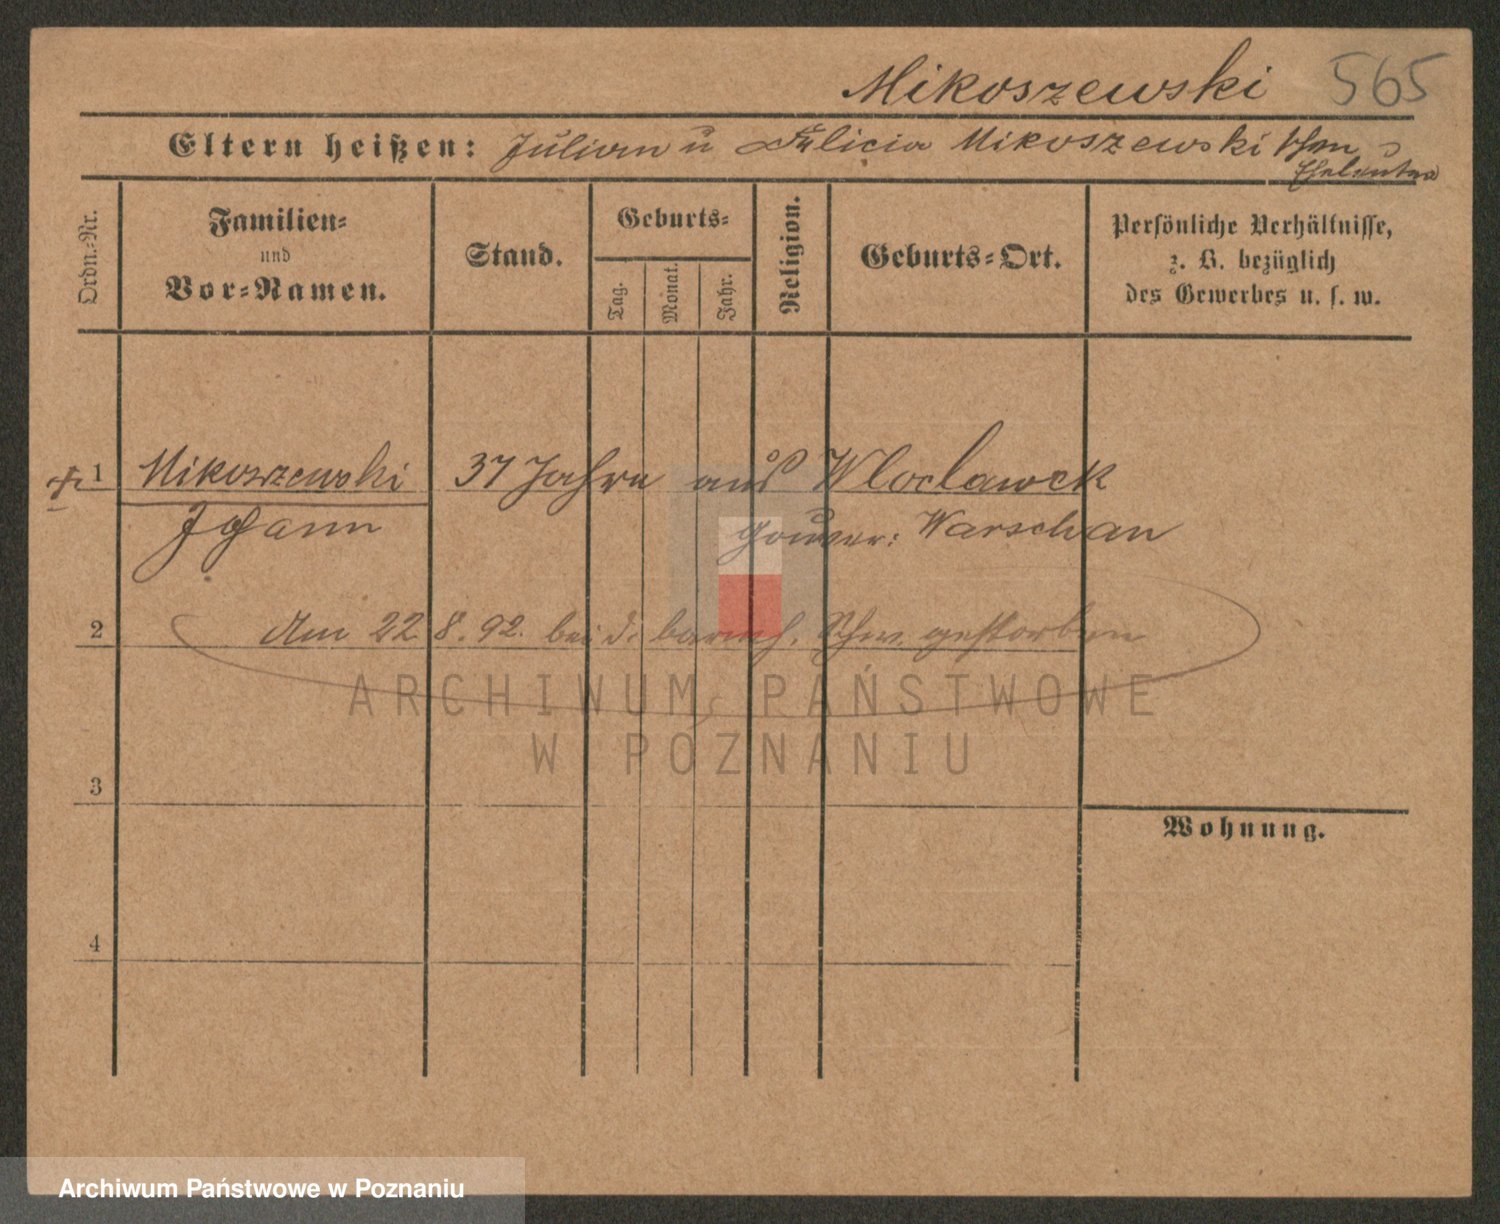 Mikoszewski 565
Eltern heißen: Julian u Felicia Mikoszewski'schen
Eheleute
Ordn.-Nr.
Familien-
und
Vor-Namen.
Stand.
Geburts-
Tag.
Monat.
Jahr.
Religion.
Geburts-Ort.
Persönliche Verhältnisse,
z. B. bezüglich
des Gewerbes u. s. w.
1 Mikoszewski 37 Jahre aus Wloclawek
Johann Gouver: Warschau
2 Am 22 8. 92. bei d. barmh. Schw. gestorben
ARCHIWUM PAŃSTWOWE
W POZNANIU
3
Wohnung.
4
Archiwum Państwowe w Poznaniu